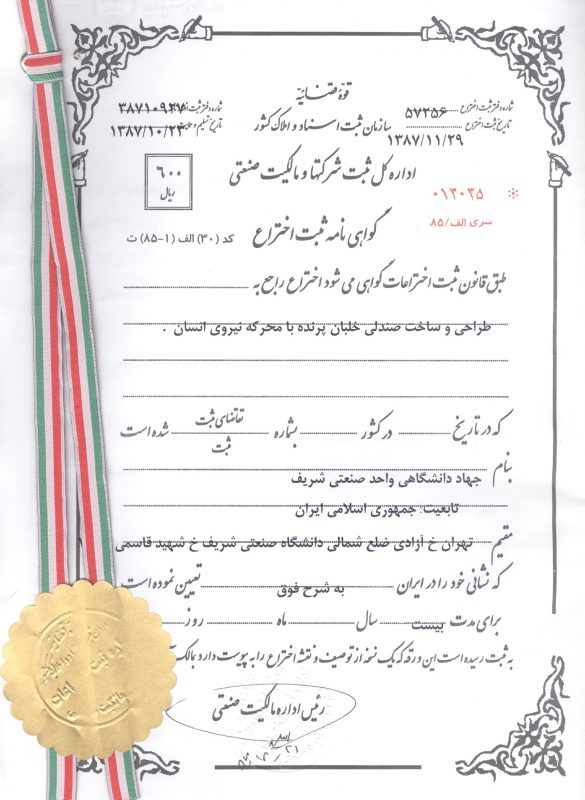 قوّهٔ قضائیّه
سازمان ثبت اسناد و املاک کشور
شماره دفتر ثبت اختراع ۵۷۲۵۶
تاریخ ثبت اختراع ۱۳۸۷/۱۱/۲۹
۳۸۷۱۰۹۲۷
۱۳۸۷/۱۰/۲۴
اداره کل ثبت شرکتها و مالکیت صنعتی
۶۰۰
ریال
۰۱۳۰۳۵
سری الف/۸۵
گواهی نامه ثبت اختراع کد (۳۰) الف (۱-۸۵) ت
طبق قانون ثبت اختراعات گواهی می شود اختراع راجع به
طراحی و ساخت صندلی خلبان پرنده با محرکه نیروی انسان .
که در تاریخ در کشور بشماره تقاضای ثبت شده است
ثبت
بنام جهاد دانشگاهی واحد صنعتی شریف
تابعیت: جمهوری اسلامی ایران
مقیم تهران خ آزادی ضلع شمالی دانشگاه صنعتی شریف خ شهید قاسمی
که نشانی خود را در ایران به شرح فوق تعیین نموده است
برای مدت بیست سال ماه روز
به ثبت رسیده است این ورقه که یک نسخه از توصیف و نقشه اختراع را به پیوست دارد بمالک آن
رئیس اداره مالکیت صنعتی